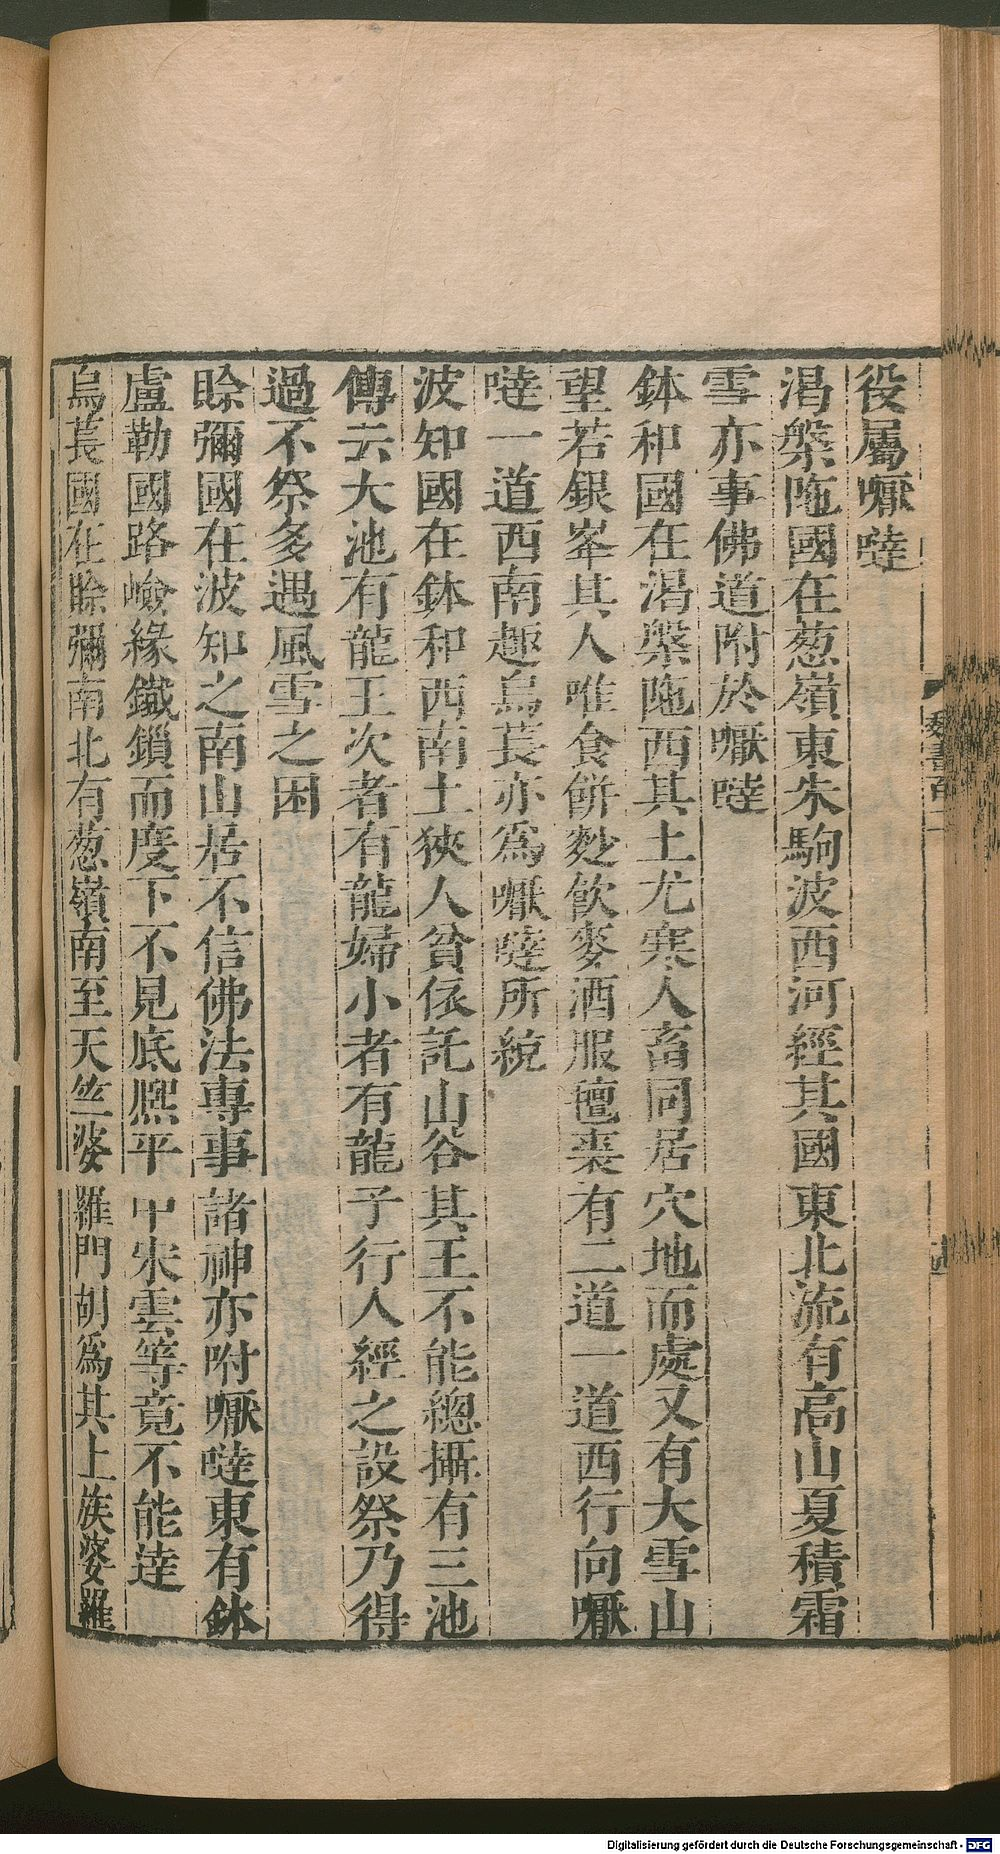 役屬嚈噠
渴槃陁國在葱嶺東朱駒波西河經其國東北流有高山夏積霜
雪亦事佛道附於嚈噠
鉢和國在渴槃陁西其土尤寒人畜同居穴地而處又有大雪山
望若銀峯其人唯食餅麨飲麥酒服氊裘有二道一道西行向嚈
噠一道西南趣烏萇亦爲嚈噠所統
波知國在鉢和西南土狹人貧依託山谷其王不能總攝有三池
傳云大池有龍王次者有龍婦小者有龍子行人經之設祭乃得
過不祭多遇風雪之困
賒彌國在波知之南山居不信佛法專事諸神亦附嚈噠東有鉢
盧勒國路嶮緣鐵鎖而度下不見底熈平中宋雲等竟不能達
烏萇國在賒彌南北有葱嶺南至天竺婆羅門胡爲其上族婆羅
魏書百二
Digitalisierung gefördert durch die Deutsche Forschungsgemeinschaft - DFG